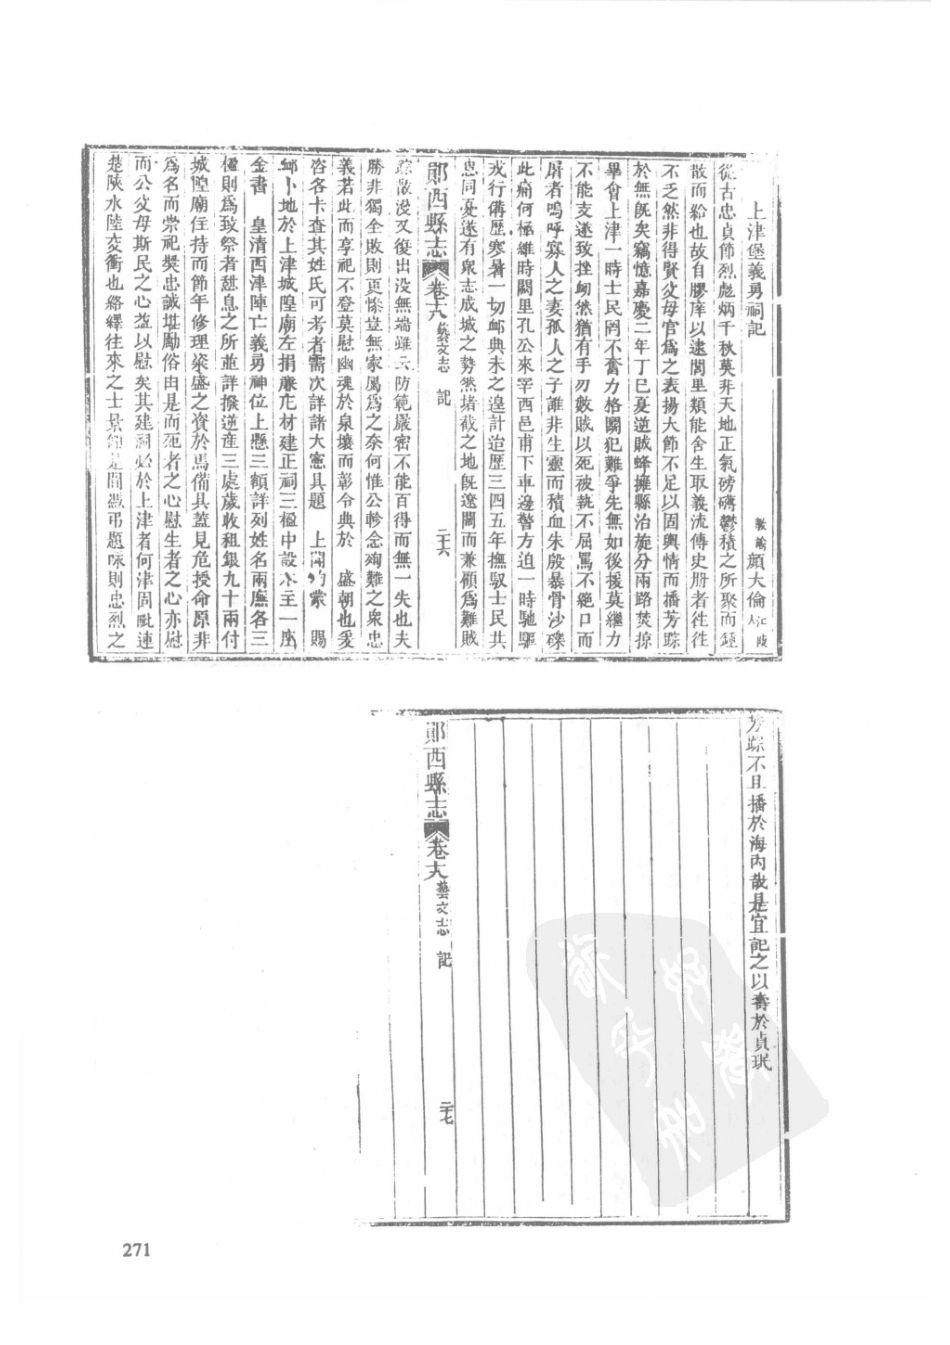 上津堡義勇祠記
教諭顏大倫江陵人
從古忠貞節烈彪炳千秋莫非天地正氣磅礡鬱積之所聚而鍾
散而給也故自膠庠以逮閭里類能舍生取義流傳史册者徃徃
不乏然非得賢父母官爲之表揚大節不足以固輿情而播芳踪
於無旣矣竊憶嘉慶二年丁巳夏逆賊蜂擁縣治旋分兩路焚掠
畢會上津一時士民罔不奮力格鬬犯難爭先無如後援莫繼力
不能支遂致挫衂然猶有手刃數賊以死被執不屈罵不絶口而
屠者嗚呼寡人之妻孤人之子誰非生靈而積血朱殷暴骨沙礫
此痛何極維時闕里孔公來宰西邑甫下車邊警方迫一時馳驅
戎行備歷寒暑一切邺典未之遑計迨歷三四五年撫馭士民共
思同憂遂有衆志成城之勢然堵截之地旣遼闊而兼顧爲難賊
郧西縣志
卷十八
藝文志
記
二十六
踪散没又復出没無端雖云防範嚴密不能百得而無一失也夫
勝非獨全敗則更慘豈無家屬爲之奈何惟公軫念殉難之衆忠
義若此而享祀不登莫慰幽魂於泉壤而彰令典於 盛朝也爰
咨各卡查其姓氏可考者需次詳諸大憲具題 上聞 蒙 賜
邺卜地於上津城隍廟左捐亷庀材建正祠三楹中設木主一座
金書 皇清西津陣亡義勇神位上懸三額詳列姓名兩廡各三
楹則爲致祭者憇息之所並詳撥逆產三處歲收租銀九十兩付
城隍廟住持而節年修理粢盛之資於焉備具蓋見危授命原非
爲名而崇祀奬忠誠堪勵俗由是而死者之心慰生者之心亦慰
而公父母斯民之心益以慰矣其建祠必於上津者何津固毗連
楚陝水陸交衝也絡繹往來之士景仰 間憑弔題咏則忠烈之
芳踪不且播於海内哉是宜記之以壽於貞珉
郧西縣志
卷十八
藝文志
記
二十七
271